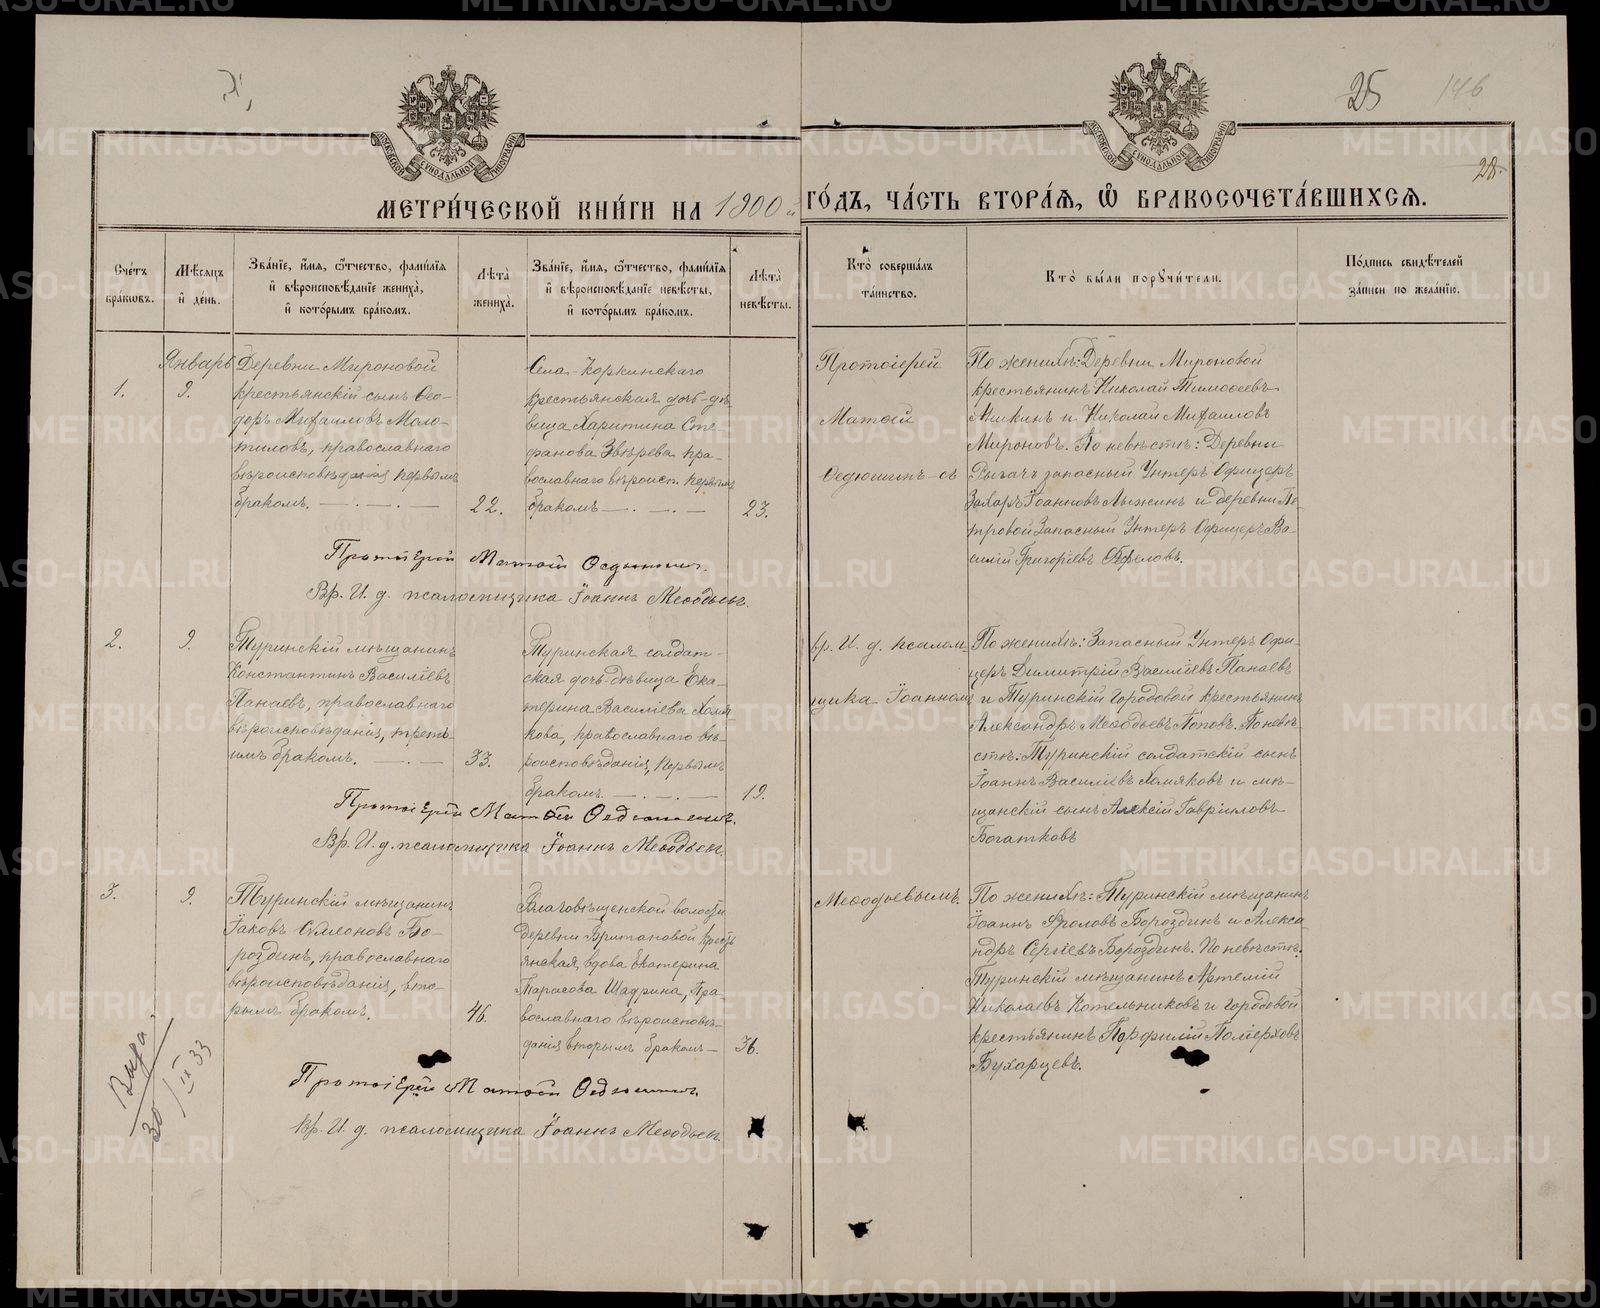 25 146
28.
МЕТРИ́ЧЕСКОЙ КНИ́ГИ НА 1900 й ГО́ДЪ, ЧА́СТЬ ВТОРА́Я, Ѡ БРАКОСОЧЕТА́ВШИХСЯ.
Сче́тъ бра́ковъ.
Мѣ́сяцъ и де́нь.
Зва́нїе, и́мя, ѻ́тчество, фами́лїя
и вѣроисповѣ́данїе жениха̀,
и кото́рымъ бра́комъ.
Лѣта̀ жениха̀.
Зва́нїе, и́мя, ѻ́тчество, фами́лїя
и вѣроисповѣ́данїе невѣ́сты,
и кото́рымъ бра́комъ.
Лѣта̀ невѣ́сты.
Кто̀ соверша́лъ та́инство.
Кто̀ бы́ли поручи́тели.
По́дпись свидѣ́телей
за́писи по жела́нїю.
1.
Январь
9.
Деревни Мироновой
крестьянскій сынъ Ѳео-
доръ Михаиловъ Моло-
тиловъ, православнаго
вѣроисповѣданія первымъ
бракомъ.
22.
Села Коркинскаго
крестьянская дочь-дѣ
вица Харитина Сте
фанова Звѣрева пра-
вославнаго вѣроисп. первымъ
бракомъ
23.
Протоіерей
Матѳій
Ѳедюшинъ-съ
По женихѣ: Деревни Мироновой
крестьянинъ Николай Тимоѳеевъ
Микинъ и Николай Михаиловъ
Мироновъ. По невѣстѣ: Деревни
Рычачъ запасный Унтеръ Офицеръ
Захаръ Іоанновъ Лыжинъ и деревни Пе-
тровой Запасный Унтеръ Офицеръ Ва-
силій Григоріевъ
Протоіерей Матѳій Ѳедюшинъ.
Вр. И. д. псаломщика Іоаннъ Меѳодьевъ.
2.
9.
Туринскій мѣщанинъ
Константинъ Василіевъ
Панаевъ, православнаго
вѣроисповѣданія, треть-
имъ бракомъ.
33.
Туринская солдат-
ская дочь-дѣвица Ека-
терина Василіева Хомя
кова, православнаго вѣ-
роисповѣданія, первымъ
бракомъ
19.
вр. И. д. псалом
щика Іоанномъ
По женихѣ: Запасный Унтеръ Офи-
церъ Димитрій Василіевъ Панаевъ
и Туринскій Городовой крестьянинъ
Александръ Меѳодьевъ Поповъ. По невѣ-
стѣ: Туринскій солдатскій сынъ
Іоаннъ Василіевъ Хомяковъ и мѣ-
щанскій сынъ Алексій Гавриловъ
Богатковъ
Протоіерей Матѳій Ѳедюшинъ.
Вр. И. д. псаломщика Іоаннъ Меѳодьевъ.
3.
9.
Туринскій мѣщанинъ
Іаковъ Симеоновъ Бо-
роздинъ, православнаго
вѣроисповѣданія, вто-
рымъ бракомъ.
46.
Благовѣщенской волости
деревни Британовой крестьѣ
янская вдова Екатерина
Тарасова Шадрина, Пра
вославнаго вѣроисповѣ-
данія вторымъ бракомъ
36.
Меѳодьевымъ.
По женихѣ: Туринскій мѣщанинъ
Іоаннъ Фроловъ Бороздинъ и Алекса
ндръ Сергіевъ Бороздинъ. По невѣстѣ:
Туринскій мѣщанинъ Артемій
Николаевъ Котельниковъ и Городовой
крестьянинъ Порфирій
Бухарцевъ.
Протоіерей Матѳій Ѳедюшинъ
Вр. И. д. псаломщика Іоаннъ Меѳодьевъ.
30/IX 33
METRIKI.GASO-URAL.RU